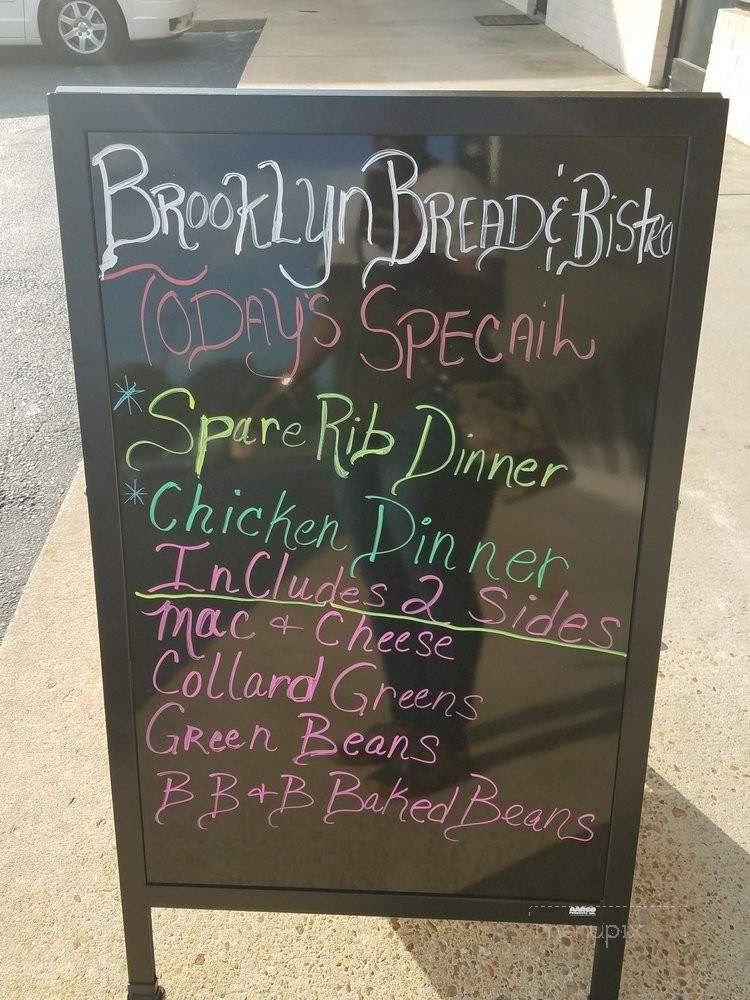 Brooklyn Bread & Bistro
Today's Specail
* Spare Rib Dinner
* Chicken Dinner
Includes 2 Sides
Mac & Cheese
Collard Greens
Green Beans
BB&B Baked Beans
AARCO
menupix